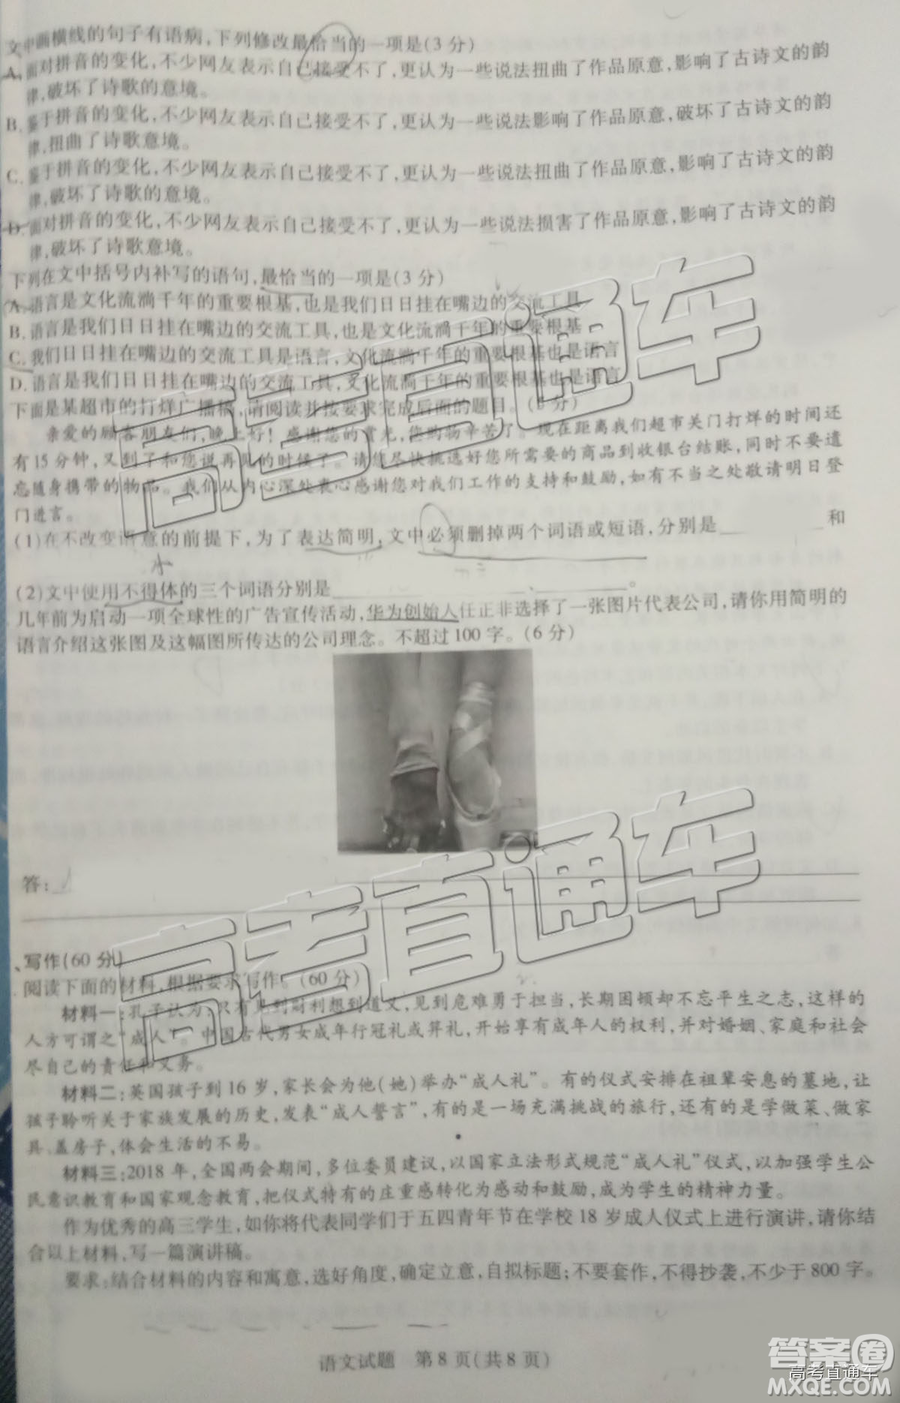 文中画横线的句子有语病,下列修改最恰当的一项是(3分)
A.面对拼音的变化,不少网友表示自己接受不了,更认为一些说法扭曲了作品原意,影响了古诗文的韵
律,破坏了诗歌的意境。
B.鉴于拼音的变化,不少网友表示自己接受不了,更认为一些说法影响了作品原意,破坏了古诗文的韵
律,扭曲了诗歌意境。
C.鉴于拼音的变化,不少网友表示自己接受不了,更认为一些说法扭曲了作品原意,影响了古诗文的韵
律,破坏了诗歌的意境。
D.面对拼音的变化,不少网友表示自己接受不了,更认为一些说法损害了作品原意,影响了古诗文的韵
律,破坏了诗歌意境。
下列在文中括号内补写的语句,最恰当的一项是(3分)
A.语言是文化流淌千年的重要根基,也是我们日日挂在嘴边的交流工具
B.语言是我们日日挂在嘴边的交流工具,也是文化流淌千年的重要根基
C.我们日日挂在嘴边的交流工具是语言,文化流淌千年的重要根基也是语言
D.语言是我们日日挂在嘴边的交流工具,文化流淌千年的重要根基也是语言
下面是某超市的打烊广播稿,请阅读并按要求完成后面的题目。( 分)
亲爱的顾客朋友们,晚上好!感谢您的赏光,您购物辛苦了。现在距离我们超市关门打烊的时间还
有15分钟,又到了和您说再见的时候了。请您尽快挑选好您所需要的商品到收银台结账,同时不要遗
忘随身携带的物品。我们从内心深处衷心感谢您对我们工作的支持和鼓励,如有不当之处敬请明日登
门进言。
(1)在不改变语意的前提下,为了表达简明,文中必须删掉两个词语或短语,分别是 和
(2)文中使用不得体的三个词语分别是 、 、 。
几年前为启动一项全球性的广告宣传活动,华为创始人任正非选择了一张图片代表公司,请你用简明的
语言介绍这张图及这幅图所传达的公司理念。不超过100字。(6分)
答:
、写作(60分)
阅读下面的材料,根据要求写作。(60分)
材料一:孔子认为,只有见到财利想到道义,见到危难勇于担当,长期困顿却不忘平生之志,这样的
人方可谓之“成人”。中国古代男女成年行冠礼或笄礼,开始享有成年人的权利,并对婚姻、家庭和社会
尽自己的责任和义务。
材料二:英国孩子到16岁,家长会为他(她)举办“成人礼”。有的仪式安排在祖辈安息的墓地,让
孩子聆听关于家族发展的历史,发表“成人誓言”,有的是一场充满挑战的旅行,还有的是学做菜、做家
具、盖房子,体会生活的不易。
材料三:2018年,全国两会期间,多位委员建议,以国家立法形式规范“成人礼”仪式,以加强学生公
民意识教育和国家观念教育,把仪式特有的庄重感转化为感动和鼓励,成为学生的精神力量。
作为优秀的高三学生,如你将代表同学们于五四青年节在学校18岁成人仪式上进行演讲,请你结
合以上材料,写一篇演讲稿。
要求:结合材料的内容和寓意,选好角度,确定立意,自拟标题;不要套作,不得抄袭,不少于800字。
语文试题 第8页(共8页)
高考直通车
高考直通车
答案圈
高考直通车
MXQE.COM